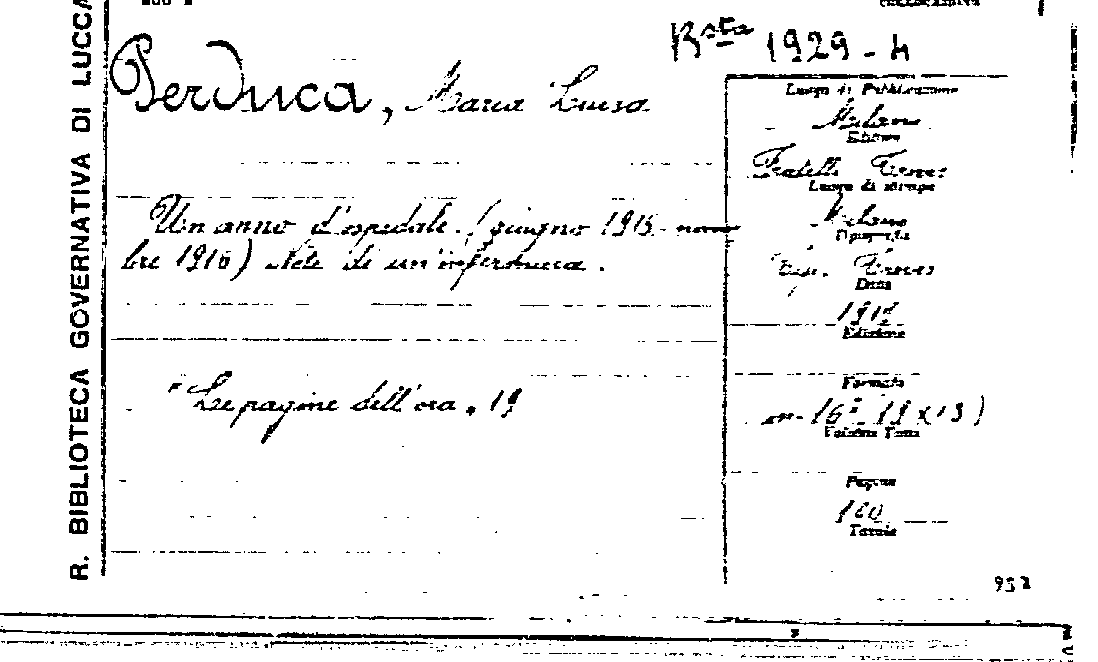 R. BIBLIOTECA GOVERNATIVA DI LUCCA
Bsta 1929-4
Perduca, Maria Luisa
Un anno d'ospedale. (giugno 1915-novem
bre 1916) Note di un'infermiera.
"Le pagine dell'ora" 19
Luogo di Pubblicazione
Milano
Editore
Fratelli Treves
Luogo di stampa
Milano
Tipografia
Tip. Treves
Data
Edizione
Formato
in-16º
Volume Tomo
Pagine
Tavole